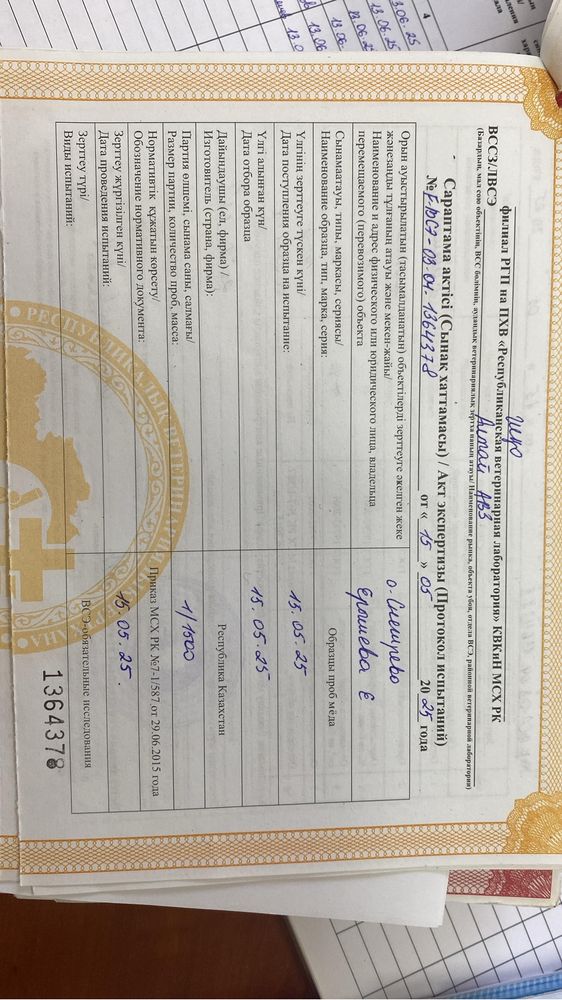 ШҚО
филиал РГП на ПХВ «Республиканская ветеринарная лаборатория» КВКиН МСХ РК
ВССЗ/ЛВСЭ Алтай АВЗ
(Базардың, мал сою объектінің, ВСС бөлімнің, аудандық ветеринариялық зертхананың атауы/ Наименование рынка, объекта убоя, отдела ВСЭ, районной ветеринарной лаборатории)
Сараптама актісі (Сынақ хаттамасы) / Акт экспертизы (Протокол испытаний)
№ F-10G7-03-04-1364378 от « 15 » 05 20 25 года
Орын ауыстырылатын (тасымалданатын) объектілерді зерттеуге әкелген жеке
және заңды тұлғаның атауы және мекен-жайы/
Наименование и адрес физического или юридического лица, владельца
перемещаемого (перевозимого) объекта
Ерышева Е
Сынама атауы, типы, маркасы, сериясы/
Наименование образца, тип, марка, серия:
Образцы проб мёда
Үлгінің зерттеуге түскен күні/
Дата поступления образца на испытание:
15.05.25
Үлгі алынған күн/
Дата отбора образца
15.05.25
Дайындаушы (ел, фирма) /
Изготовитель (страна, фирма):
Республика Казахстан
Партия өлшемі, сынама саны, салмағы/
Размер партии, количество проб, масса:
1/1500
Нормативтік құжатын көрсету/
Обозначение нормативного документа:
Приказ МСХ РК №7-1/587,от 29.06.2015 года
Зерттеу жүргізілген күні/
Дата проведения испытаний:
15.05.25.
Зерттеу түрі/
Виды испытаний:
ВСЭ-обязательные исследования
1364378
4
13.06.25
13.06.25
13.06.2
13.06.
13.06
13.0